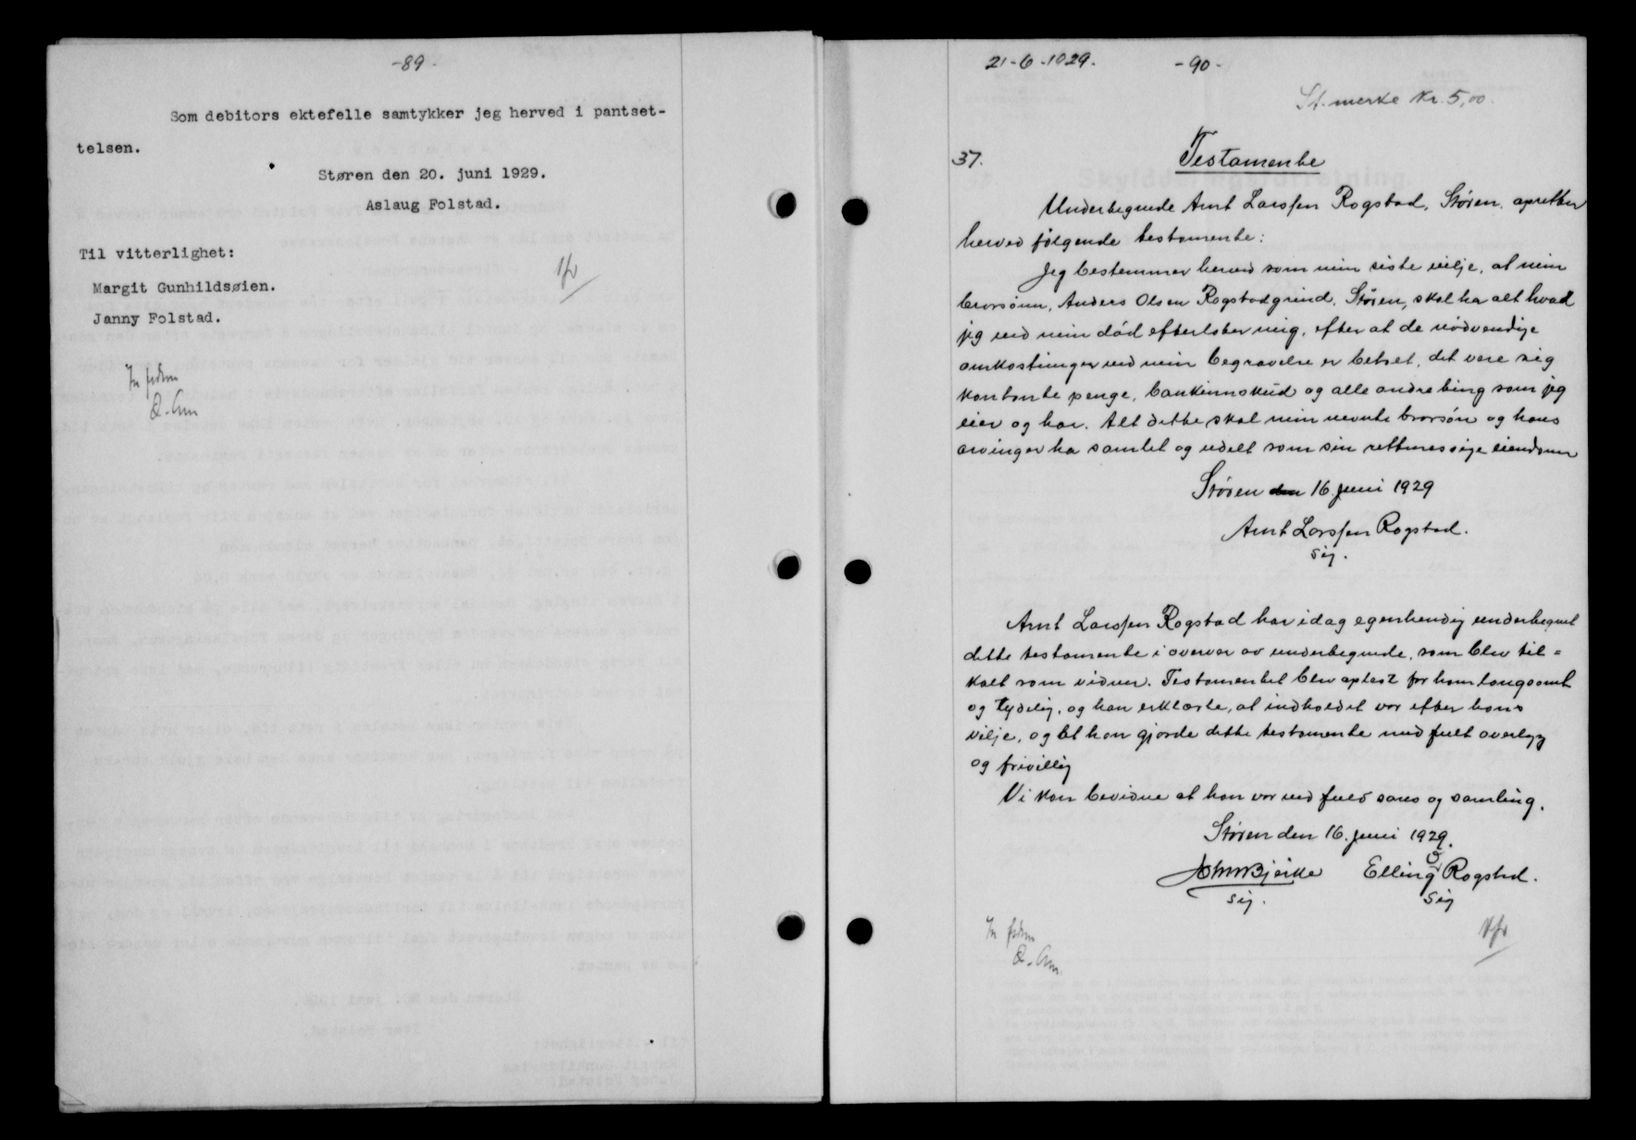 -89-
Som debitors ektefelle samtykker jeg herved i pantset-
telsen.
Støren den 20. juni 1929.
Aslaug Folstad.
Til vitterlighet:
Margit Gunhildsøien.
Janny Folstad.
21-6-1929. -90-
St. merke Kr. 5,00.
37. Testamente
Undertegnede Arnt Larssen Rogstad, Støren, opretter
herved følgende testamente:
Jeg bestemmer herved som min siste vilje, at min
brorsønn, Anders Olsen Rogstadgrind, Støren, skal ha alt hvad
jeg ved min død efterlater mig, efter at de nødvendige
omkostninger ved min begravelse er betalt, det være sig
kontante penge, bankinnskud og alle andre ting som jeg
eier og har. Alt dette skal min nevnte brorsøn og hans
arvinger ha samlet og udelt som sin rettmessige eiendom
Støren den 16. juni 1929
Arnt Larssen Rogstad.
sig.
Arnt Larssen Rogstad har idag egenhendig undertegnet
dette testamente i overvær av undertegnede, som blev til=
kalt som vidner. Testamentet blev oplest for ham langsomt
og tydelig, og han erklærte, at indholdet var efter hans
vilje, og at han gjorde dette testamente med fult overlegg
og frivillig
Vi kan bevidne at han var ved fuld sans og samling.
Støren den 16. juni 1929.
John Bjerke Elling O Rogstad.
sig. sig